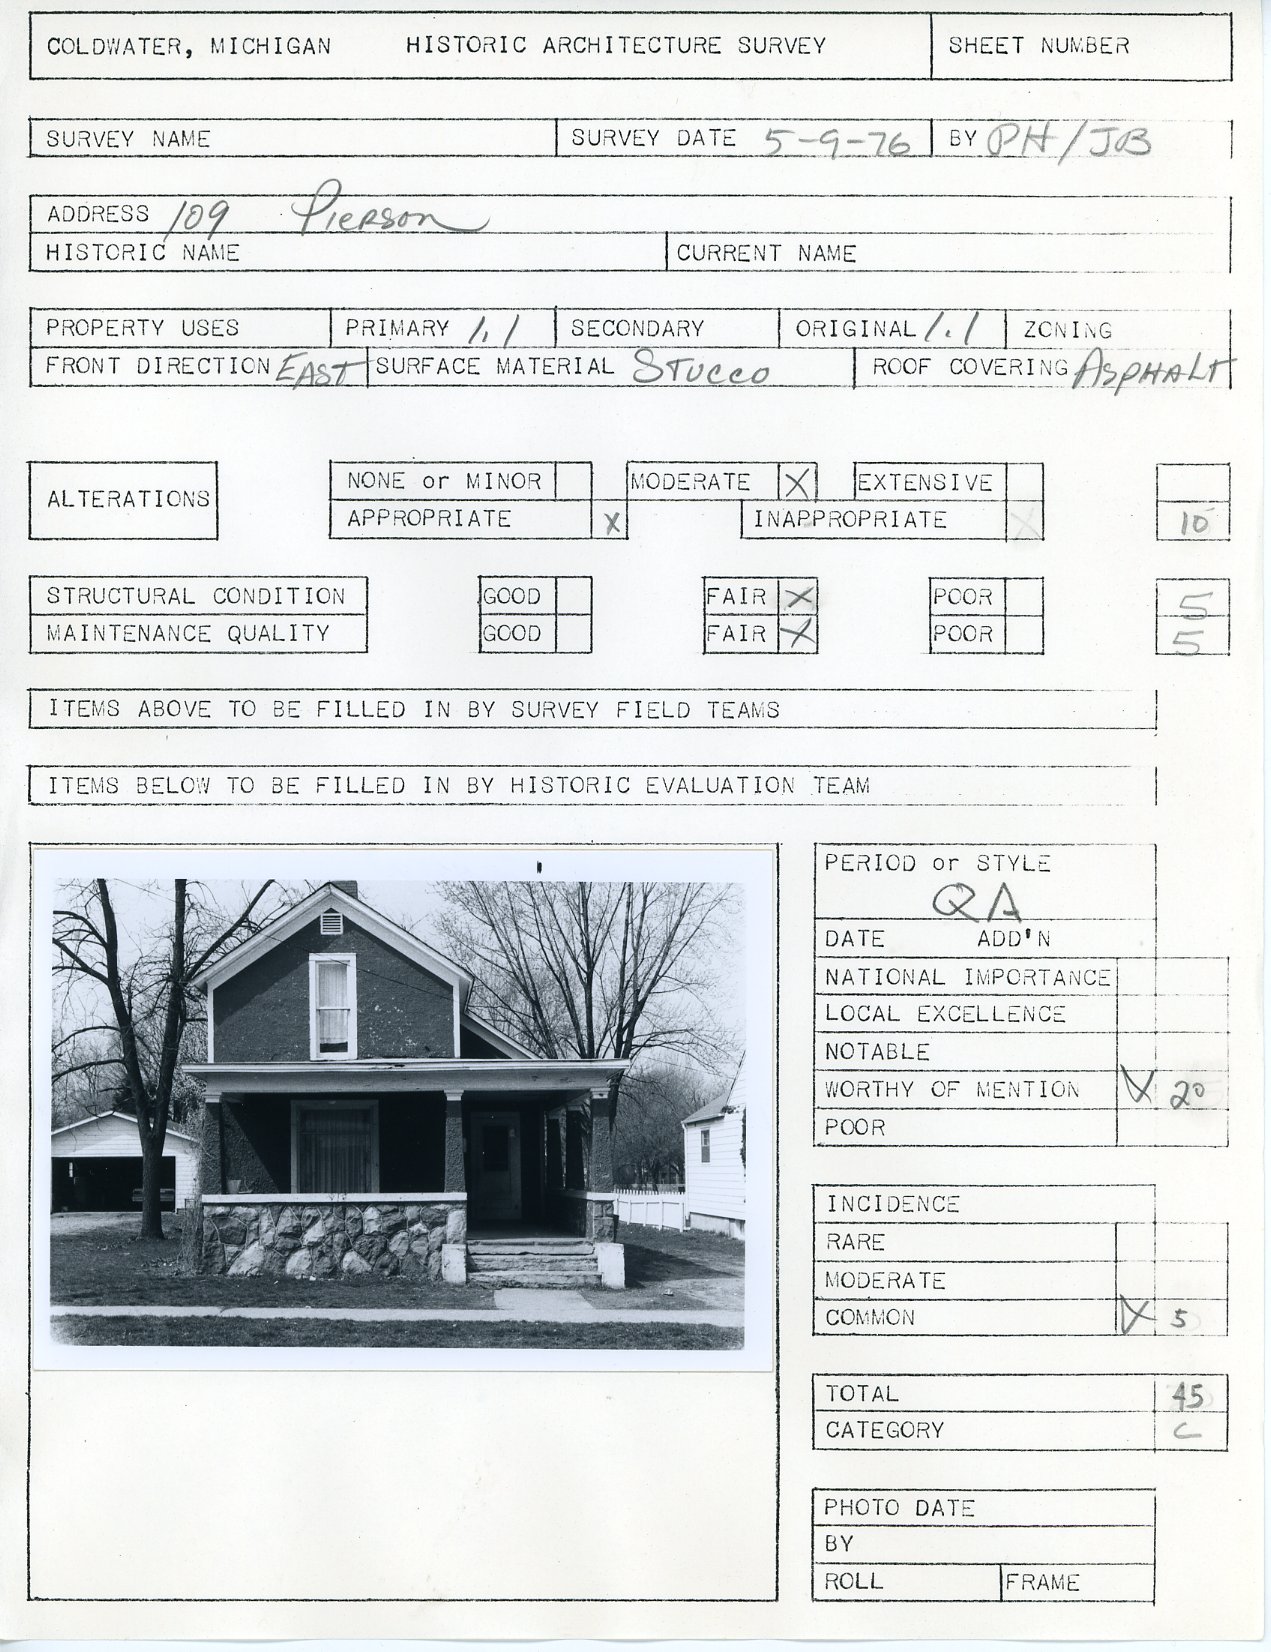 COLDWATER, MICHIGAN HISTORIC ARCHITECTURE SURVEY SHEET NUMBER
SURVEY NAME SURVEY DATE 5-9-76 BY PH/JB
ADDRESS 109 Pierson
HISTORIC NAME CURRENT NAME
PROPERTY USES PRIMARY 1.1 SECONDARY ORIGINAL 1.1 ZONING
FRONT DIRECTION EAST SURFACE MATERIAL STUCCO ROOF COVERING ASPHALT
ALTERATIONS
NONE or MINOR MODERATE X EXTENSIVE
APPROPRIATE X INAPPROPRIATE X 10
STRUCTURAL CONDITION GOOD FAIR X POOR 5
MAINTENANCE QUALITY GOOD FAIR X POOR 5
ITEMS ABOVE TO BE FILLED IN BY SURVEY FIELD TEAMS
ITEMS BELOW TO BE FILLED IN BY HISTORIC EVALUATION TEAM
PERIOD or STYLE
QA
DATE ADD'N
NATIONAL IMPORTANCE
LOCAL EXCELLENCE
NOTABLE
WORTHY OF MENTION X 20
POOR
INCIDENCE
RARE
MODERATE
COMMON X 5
TOTAL 45
CATEGORY C
PHOTO DATE
BY
ROLL FRAME